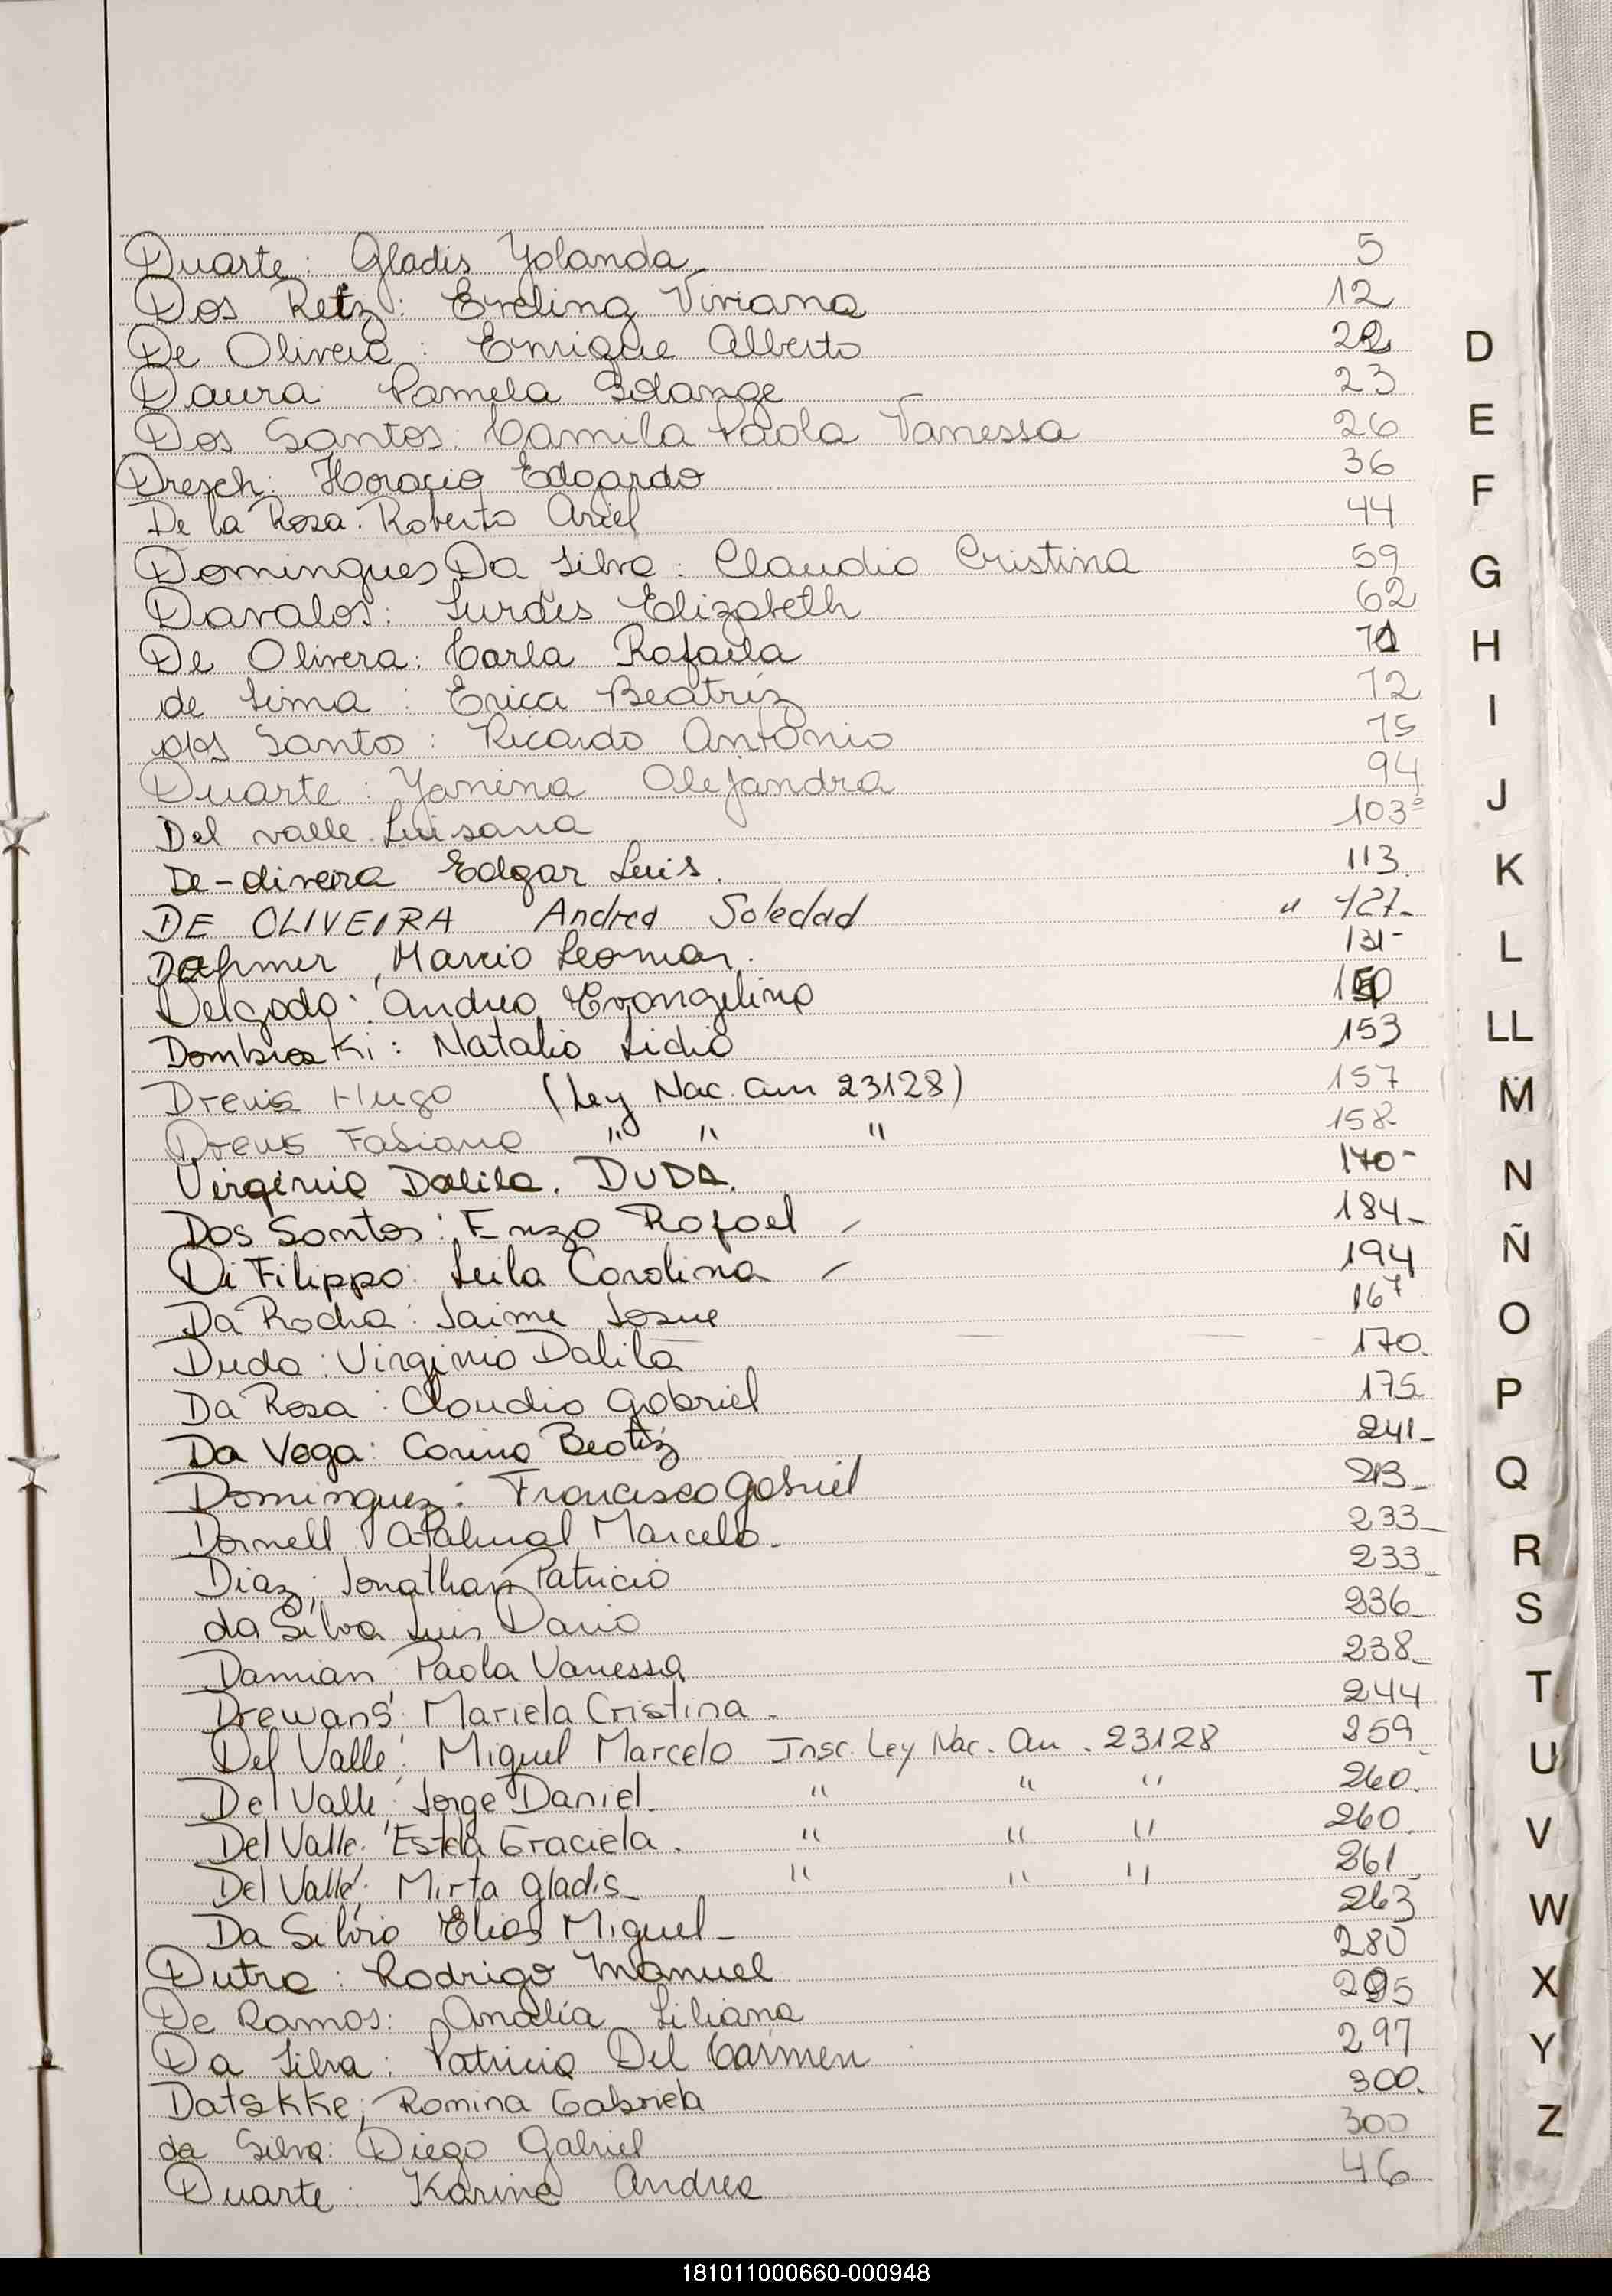 Duarte: Gladis Yolanda 5
Dos Retz: Eveling Viviana 12
De Oliveira: Enrique Alberto 22
Daura: Pamela Solange 23
Dos Santos: Camila Paola Vanessa 26
Dresch: Horacio Edgardo 36
De la Rosa: Roberto Ariel 44
Domingues Da Silva: Claudia Cristina 59
Davalos: Lurdes Elizabeth 62
De Olivera: Carla Rafaela 71
de Lima: Erica Beatriz 72
dos Santos: Ricardo Antonio 75
Duarte: Yanina Alejandra 94
Del valle. Luisana 103
De-olivera Edgar Luis. 113.
DE OLIVEIRA Andrea Soledad " 127-
Dahmer, Marcio Leomar. 131-
Delgado: Andrea Evangelina 150
Dombroski: Natalio Lidio 153
Drews Hugo (Ley Nac. Am 23128) 157
Drews Fabiana " " " 158
Virginia Dalila. DUDA. 170-
Dos Santos: Enzo Rafael - 184-
Di Filippo: Leila Carolina - 194
Da Rocha: Jaime Josue 167
Duda: Virginia Dalila 170.
Da Rosa: Claudio Gabriel 175
Da Vega: Corina Beatriz 241-
Dominguez: Francisco Gabriel 213-
Dornell Marcelo. 233-
Diaz: Jonathan Patricio 233-
da Silva Luis Dario 236-
Damian: Paola Vanessa 238-
Drewans: Mariela Cristina. 244
Del Valle: Miguel Marcelo Insc. Ley Nac. Am. 23128 259
Del Valle: Jorge Daniel. " " " 260.
Del Valle: Estela Graciela. " " " 260.
Del Valle: Mirta Gladis- " " " 261
Da Silva Elias Miguel- 263
Dutra: Rodrigo Manuel 280
De Ramos: Analía Liliana 295
Da Silva: Patricia Del Carmen 297
Datskke; Romina Gabriela 300.
da Silva: Diego Gabriel 300
Duarte: Karina Andrea 46
D
E
F
G
H
I
J
K
L
LL
M
N
Ñ
O
P
Q
R
S
T
U
V
W
X
Y
Z
181011000660-000948